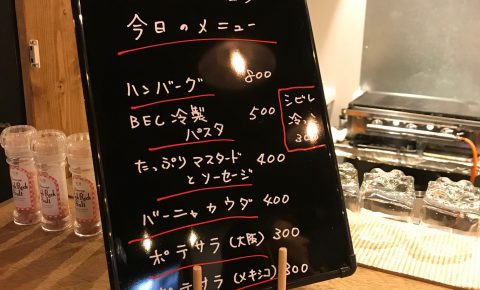 今日のメニュー
ハンバーグ 800
BEC冷製 500
パスタ
シビレ
冷
たっぷりマスタード 400
とソーセージ
バーニャカウダ 400
ポテサラ(大阪) 300
ポテサラ(メキシコ) 300
Rock
Salt